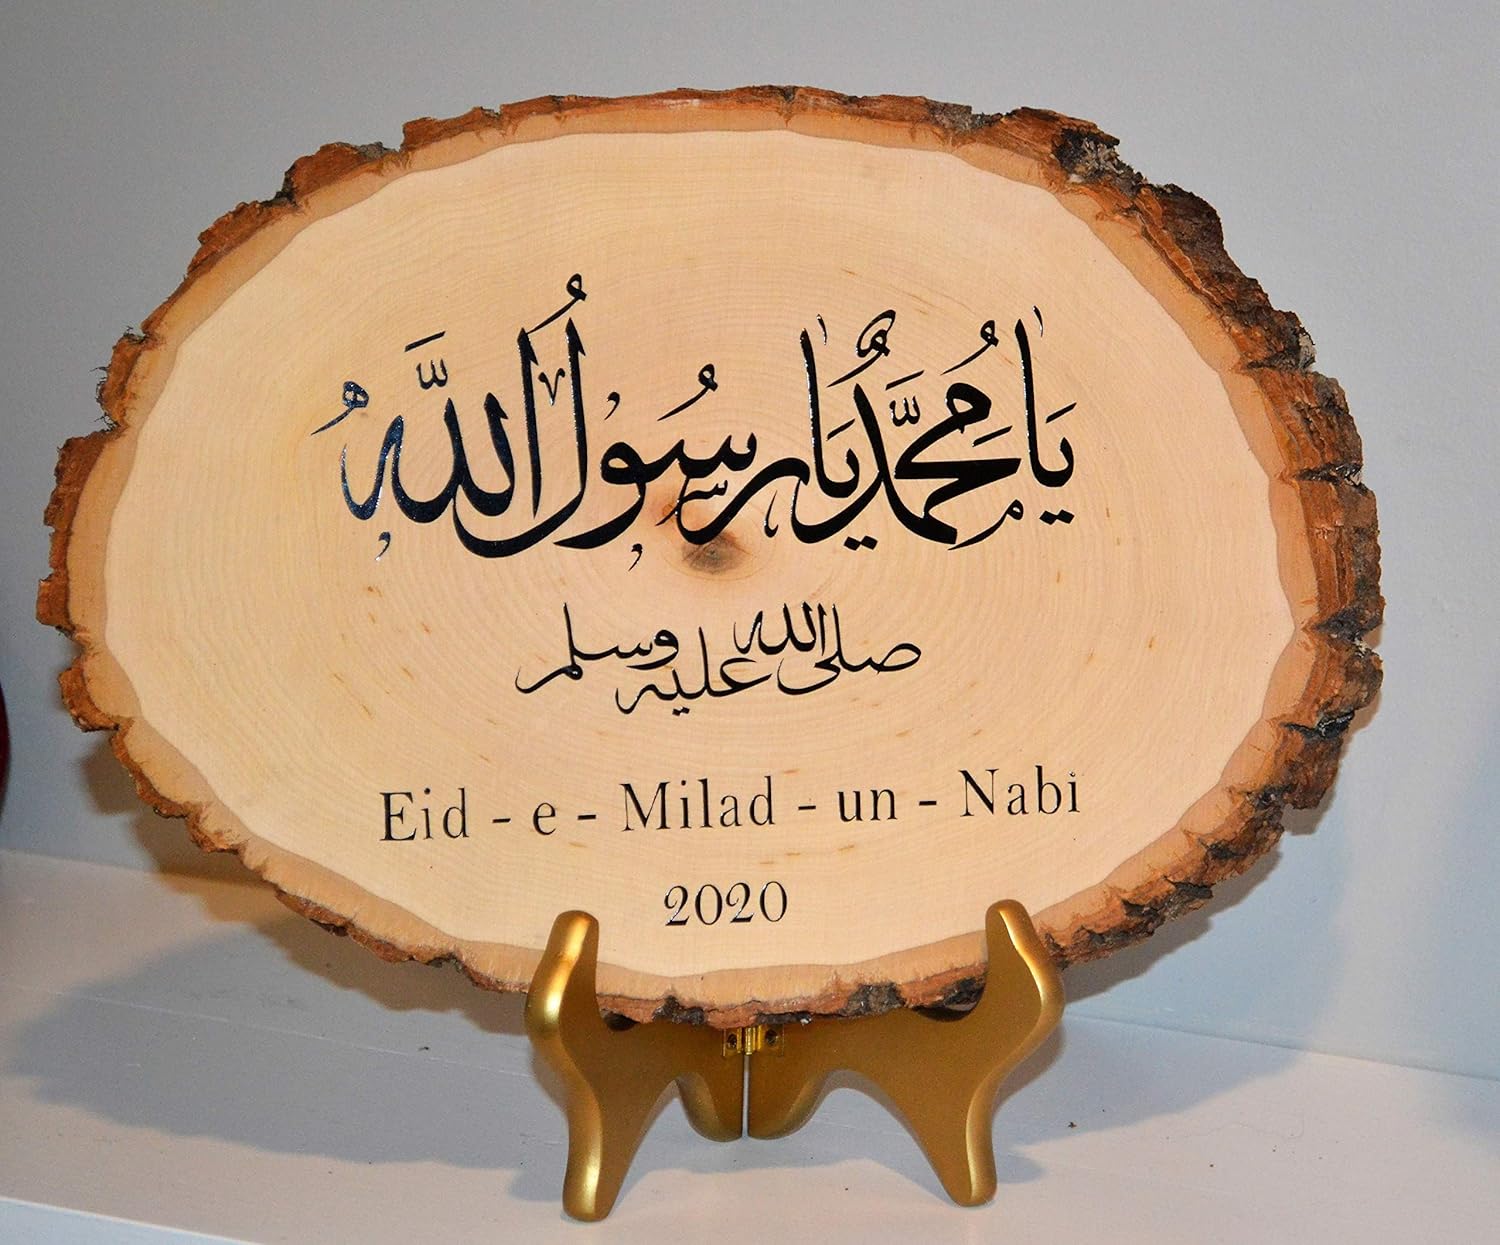 يَا مُحَمَّدُ يَا رَسُولُ اللَّهُ
صلى الله عليه وسلم
Eid - e - Milad - un - Nabi
2020